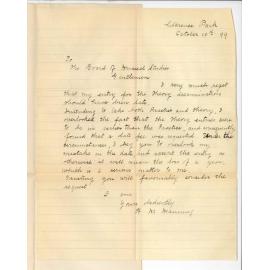 Clarence Park
October 10th 99
To
The Board of Musical Studies
Gentlemen
I very much regret
that my entry for the Theory Examinations
should have been late.
Intending to take both Practice and Theory, I
overlooked the fact that the Theory entries were
to be in earlier than the Practice, and consequently
found that a late fee was required. Under the
circumstances, I beg you to overlook my
mistake in the date and accept the entry as
otherwise it will mean the loss of a year,
which is a serious matter to me.
Trusting you will favourably consider the
request
I am
Yours
H. M. Manning